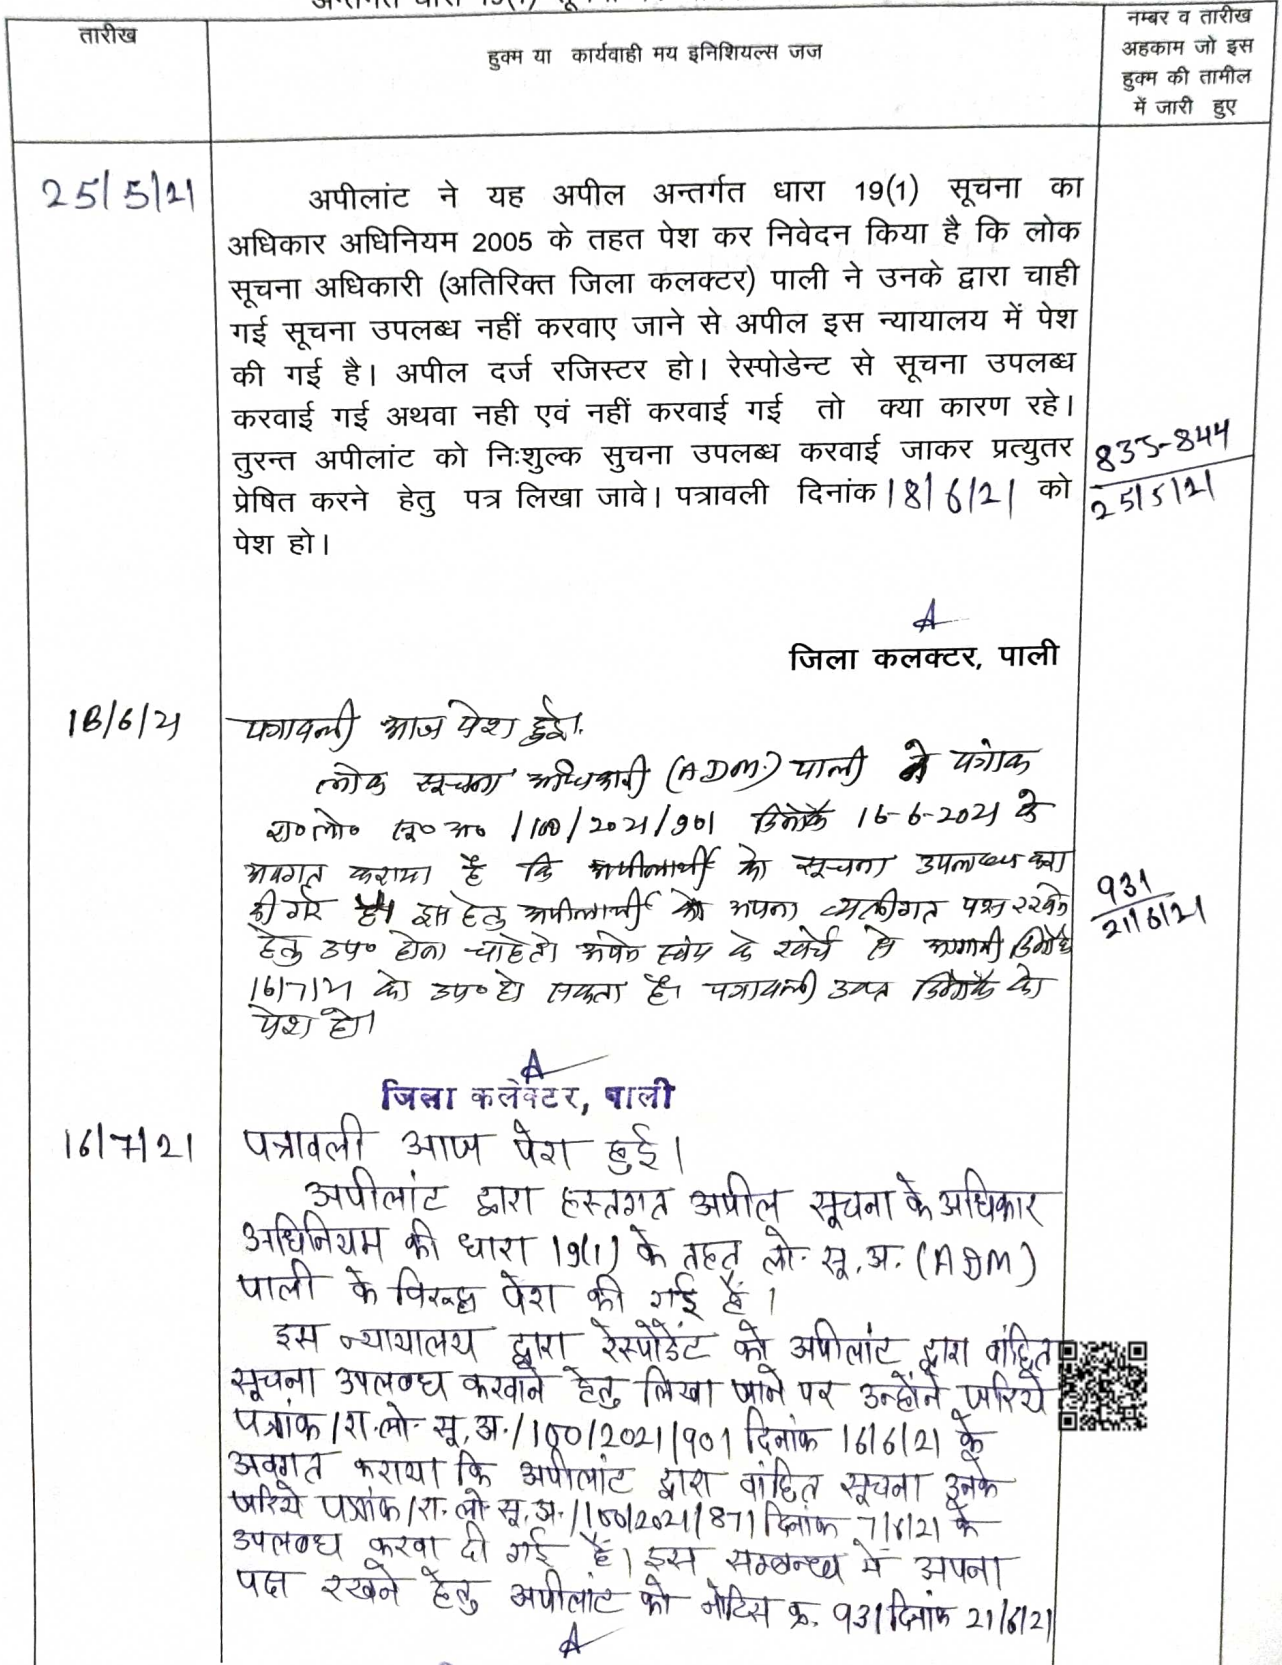 तारीख
हुक्म या कार्यवाही मय इनिशियल्स जज
नम्बर व तारीख
अहकाम जो इस
हुक्म की तामील
में जारी हुए
25/5/21
अपीलांट ने यह अपील अन्तर्गत धारा 19(1) सूचना का
अधिकार अधिनियम 2005 के तहत पेश कर निवेदन किया है कि लोक
सूचना अधिकारी (अतिरिक्त जिला कलक्टर) पाली ने उनके द्वारा चाही
गई सूचना उपलब्ध नहीं करवाए जाने से अपील इस न्यायालय में पेश
की गई है। अपील दर्ज रजिस्टर हो। रेस्पोडेन्ट से सूचना उपलब्ध
करवाई गई अथवा नही एवं नहीं करवाई गई तो क्या कारण रहे।
तुरन्त अपीलांट को निःशुल्क सुचना उपलब्ध करवाई जाकर प्रत्युतर
प्रेषित करने हेतु पत्र लिखा जावे। पत्रावली दिनांक 18/6/21 को
पेश हो।
835-844
25/5/21
जिला कलक्टर, पाली
18/6/21
पत्रावली आज पेश हुई।
लोक सूचना अधिकारी (ADM) पाली ने पत्रांक
रा० लो० सू० अ० /100/2021/901 दिनांक 16-6-2021 के
अवगत कराया है कि अपीलार्थी को सूचना उपलब्ध करा
दी गई है। इस हेतु अपीलार्थी को अपना व्यक्तीगत पक्ष रखने
हेतु उप० होना चाहे तो अपने स्वंय के खर्चे से आगामी दिनांक
16/7/21 को उप० हो सकता है। पत्रावली उक्त दिनांक को
पेश हो।
931
21/6/21
जिला कलेक्टर, पाली
16/7/21
पत्रावली आज पेश हुई।
अपीलांट द्वारा हस्तगत अपील सूचना के अधिकार
अधिनियम की धारा 19(1) के तहत लो. सू. अ. (ADM)
पाली के विरूद्ध पेश की गई है।
इस न्यायालय द्वारा रेस्पोडेंट को अपीलांट द्वारा वांछित
सूचना उपलब्ध करवाने हेतु लिखा जाने पर उन्होंने जरिये
पत्रांक /रा. लो. सू. अ./100/2021/901 दिनांक 16/6/21 के
अवगत कराया कि अपीलांट द्वारा वांछित सूचना उनके
जरिये पत्रांक /रा. लो. सू. अ./100/2021/871 दिनांक 7/6/21 के
उपलब्ध करवा दी गई है। इस सम्बन्ध में अपना
पक्ष रखने हेतु अपीलांट को नोटिस क्र. 931 दिनांक 21/6/21